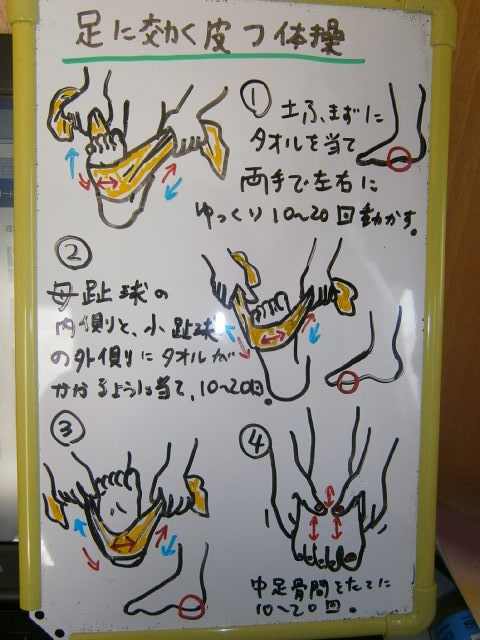 足に効く皮つ体操
①
土ふまずに
タオルを当て
両手で左右に
ゆっくり10〜20回動かす。
②
母趾球の
内側と、小趾球
の外側にタオルが
かかるように当て、10〜20回。
③
④
中足骨間をたてに
10〜20回。